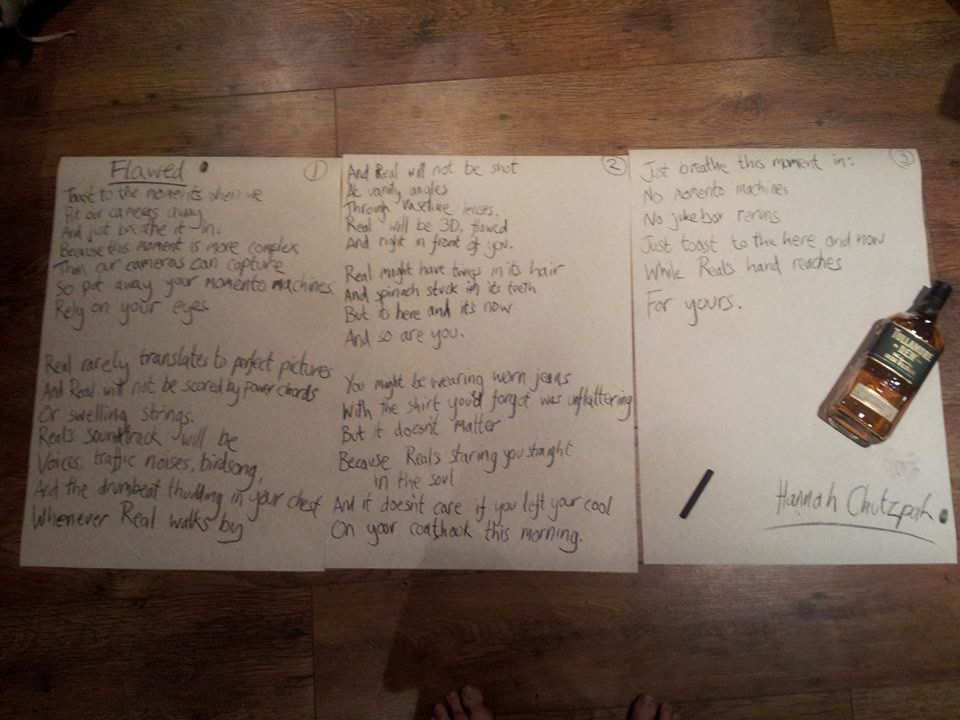 Flawed
1
Toast to the moments when we
Put our cameras away
And just breathe it in.
Because this moment is more complex
Than our cameras can capture
So put away your momento machines.
Rely on your eyes.
Real rarely translates to perfect pictures
And Real will not be scored by power chords
Or swelling strings.
Real's soundtrack will be
Voices, traffic noises, birdsong,
And the drumbeat thudding in your chest
Whenever Real walks by
2
And Real will not be shot
At vanity angles
Through vaseline lenses.
Real will be 3D, flawed
And right in front of you.
Real might have twigs in its hair
And spinach stuck in its teeth
But its here and its now
And so are you.
You might be wearing worn jeans
With the shirt you'd forgot was unflattering
But it doesn't matter
Because Real's staring you straight
in the soul
And it doesn't care if you left your cool
On your coathook this morning.
3
Just breathe this moment in:
No momento machines
No jukebox reruns
Just toast to the here and now
While Real's hand reaches
For yours.
TULLAMORE
DEW
Hannah Chutzpah